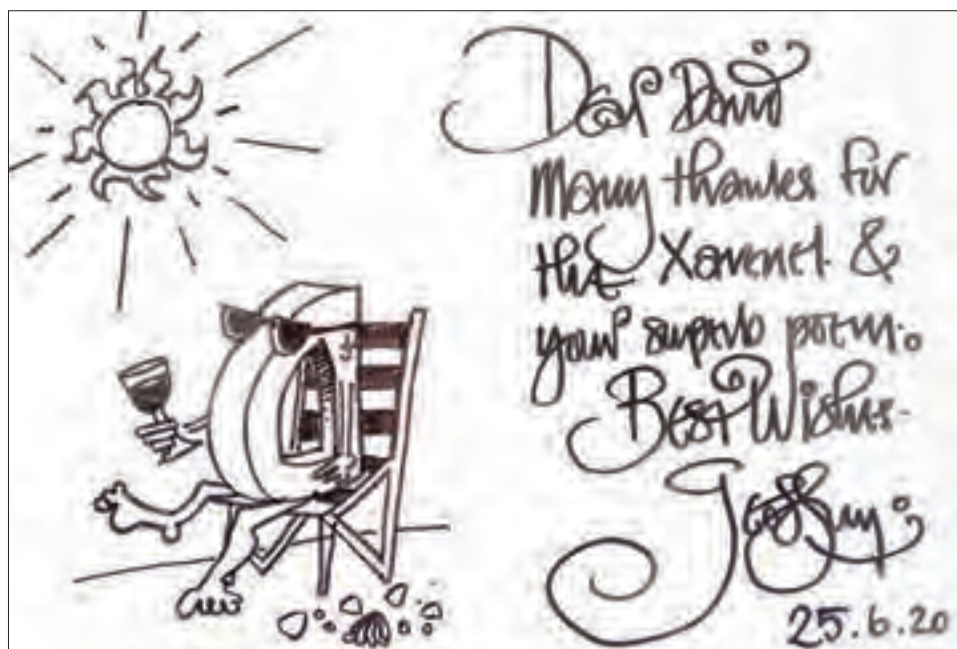 Dear David
Many thanks for
the &
your superb poem.
Best Wishes.
25.6.20